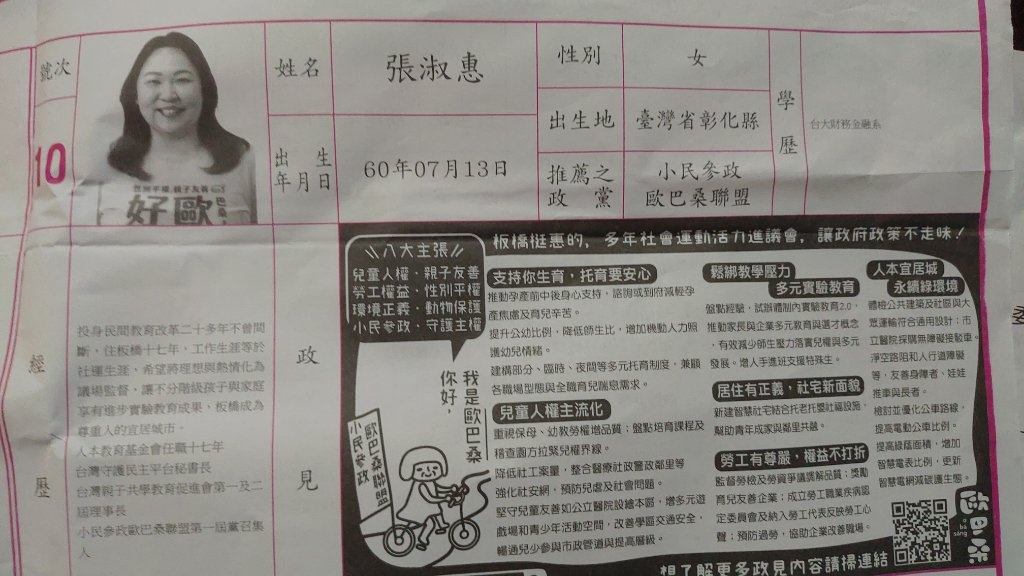 號次
10
姓名
張淑惠
性別
女
學歷
台大財務金融系
出生年月日
60年07月13日
出生地
臺灣省彰化縣
推薦之政黨
小民參政
歐巴桑聯盟
好歐
巴桑
經歷
投身民間教育改革二十多年不曾間
斷，住板橋十七年，工作生涯等於
社運生涯，希望將理想與熱情化為
議場監督，讓不分階級孩子與家庭
享有進步實驗教育成果，板橋成為
尊重人的宜居城市。
人本教育基金會任職十七年
台灣守護民主平台秘書長
台灣親子共學教育促進會第一及二
屆理事長
小民參政歐巴桑聯盟第一屆黨召集
人
政見
板橋挺惠的，多年社會運動活力進議會，讓政府政策不走味！
八大主張
兒童人權、親子友善
勞工權益、性別平權
環境正義、動物保護
小民參政、守護主權
你好，
我是歐巴桑
小民參政
歐巴桑聯盟
支持你生育，托育要安心
推動孕產前中後身心支持，諮詢或到府減輕孕
產焦慮及育兒辛苦。
提升公幼比例，降低師生比，增加機動人力照
護幼兒情緒。
建構部分、臨時、夜間等多元托育制度，兼顧
各職場型態與全職育兒喘息需求。
兒童人權主流化
重視保母、幼教勞權增品質；盤點培育課程及
稽查園方拉緊兒權界線。
降低社工案量，整合醫療社政警政鄰里等
強化社安網，預防兒虐及社會問題。
堅守兒童友善如公立醫院設繪本區，增多元遊
戲場和青少年活動空間，改善學區交通安全，
暢通兒少參與市政管道與提高層級。
鬆綁教學壓力
多元實驗教育
盤點經驗，試辦體制內實驗教育2.0，
推動家長與企業多元教育與選才概念
，有效減少師生壓力落實兒權與多元
發展。增人手進班支援特殊生。
居住有正義，社宅新面貌
新建智慧社宅結合托老托嬰社福設施，
幫助青年成家與鄰里共融。
勞工有尊嚴，權益不打折
監督勞檢及勞資爭議調解品質；獎勵
育兒友善企業；成立勞工職業疾病認
定委員會及納入勞工代表反映勞工心
聲；預防過勞，協助企業改善職場。
人本宜居城
永續綠環境
體檢公共建築及社區與大
眾運輸符合通用設計；市
立醫院採購無障礙接駁車。
淨空路阻和人行道障礙
等，友善身障者、娃娃
推車與長者。
檢討並優化公車路線，
提高電動公車比例。
提高綠蔭面積，增加
智慧電表比例，更新
智慧電網減碳護生態。
歐巴桑
想了解更多政見內容請掃連結